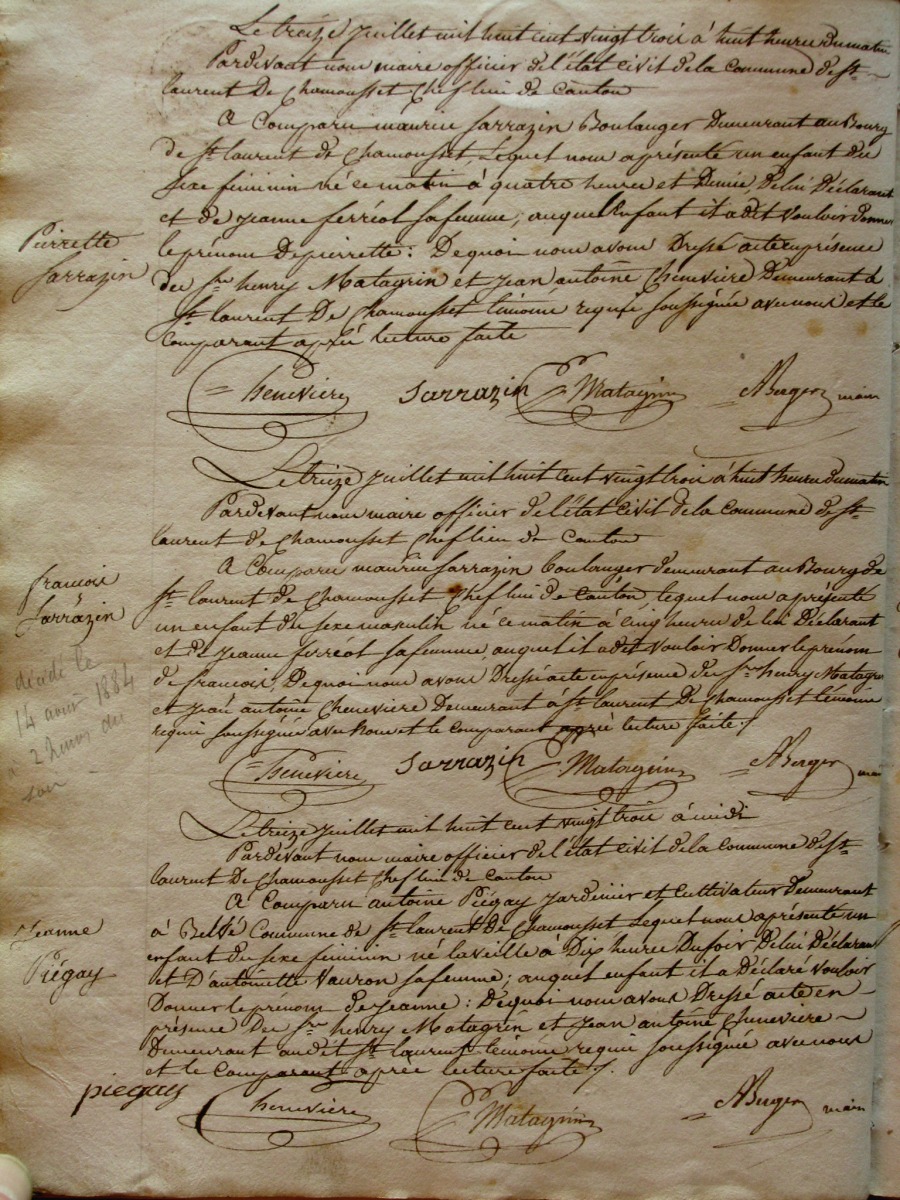 Le treize juillet mil huit cent vingt trois à huit heures du matin
Pardevant nous maire officier de l'état civil de la Commune de St
laurent De Chamousset Chef lieu de Canton
A Comparu maurice Sarrazin Boulanger Demeurant au Bourg
de St laurent de Chamousset, Lequel nous a présenté un enfant du
Sexe féminin né ce matin à quatre heures et Demie, de lui Déclarant
et de jeanne ferréol sa femme, auquel Enfant il a dit vouloir Donner
Pierrette
le prénom De pierrette : De quoi nous avons Dressé acte en présence
Sarrazin
des Srs henry Matagrin et jean antoine Chenevière Demeurant à
St laurent De Chamousset témoins requis soussignés avec nous et le
Comparant après lecture faite
Chenevière Sarrazin Matagrin ABerger maire
Le treize juillet mil huit cent vingt trois à huit heures du matin
Pardevant nous maire officier de l'état civil de la Commune de St
laurent de Chamousset Chef lieu de Canton
A Comparu maurice Sarrazin boulanger demeurant au Bourg de
françois
St laurent de Chamousset Chef lieu de Canton, lequel nous a présenté
Sarrazin
un enfant du sexe masculin né ce matin à cinq heures de lui Déclarant
et de jeanne ferréol sa femme, auquel il a dit vouloir Donner le prénom
décédé le
de françois, De quoi nous avons Dressé acte en présence des Srs henry Matagrin
14 août 1884
et jean antoine Chenevière Demeurant à St laurent De Chamousset témoins
à 2 heures du
requis soussignés avec nous et le comparant après lecture faite ./.
soir
Chenevière Sarrazin Matagrin ABerger maire
Le treize juillet mil huit cent vingt trois à midi
Pardevant nous maire officier de l'état civil de la Commune de St
laurent De Chamousset Chef lieu de Canton
A Comparu antoine Piégay jardinier et Cultivateur Demeurant
Jeanne
à Belvé Commune de St laurent De Chamousset Lequel nous a présenté un
enfant du sexe féminin né la veille à Dix heures Du soir De lui Déclarant
Piégay
et D'antoinette vauron sa femme ; auquel enfant il a Déclaré vouloir
Donner le prénom de jeanne : de quoi nous avons Dressé acte en
présence Des Srs henry Matagrin et jean antoine Chenevière
Demeurant audit St laurent témoins requis soussignés avec nous
et le Comparant après lecture faite ./.
piegay Chenevière Matagrin ABerger maire